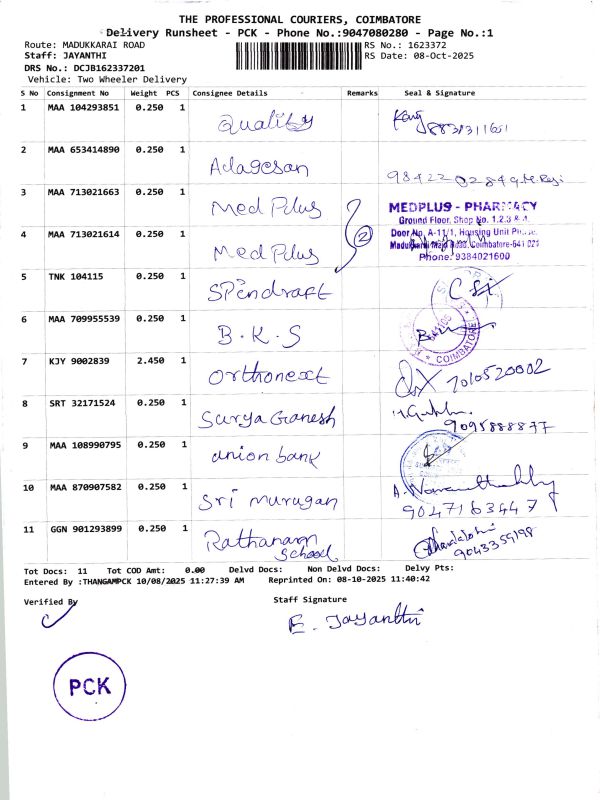 THE PROFESSIONAL COURIERS, COIMBATORE
Delivery Runsheet - PCK - Phone No.:9047080280 - Page No.:1
Route: MADUKKARAI ROAD RS No.: 1623372
Staff: JAYANTHI RS Date: 08-Oct-2025
DRS No.: DCJB162337201
Vehicle: Two Wheeler Delivery
S No Consignment No Weight PCS Consignee Details Remarks Seal & Signature
1 MAA 104293851 0.250 1 Quality 8838311651
2 MAA 653414890 0.250 1 Adageson
3 MAA 713021663 0.250 1 Med Plus MEDPLUS - PHARMACY
Ground Floor, Shop No. 1,2,3 & 4,
4 MAA 713021614 0.250 1 Med Plus 2 Door No. A-11/1, Housing Unit
Madukkarai Main Road, Coimbatore-641 021
Phone: 9384021600
5 TNK 104115 0.250 1 SPindraft
6 MAA 709955539 0.250 1 B.K.S COIMBATORE
7 KJY 9002839 2.450 1 Orthonext 7010520002
8 SRT 32171524 0.250 1 Surya Ganesh 9095888877
9 MAA 108990795 0.250 1 union bank
10 MAA 870907582 0.250 1 Sri Murugan 9047163447
11 GGN 901293899 0.250 1 Rathanam School 9043359198
Tot Docs: 11 Tot COD Amt: 0.00 Delvd Docs: Non Delvd Docs: Delvy Pts:
Entered By :THANGAMPCK 10/08/2025 11:27:39 AM Reprinted On: 08-10-2025 11:40:42
Verified By Staff Signature
E. Jayanthi
PCK